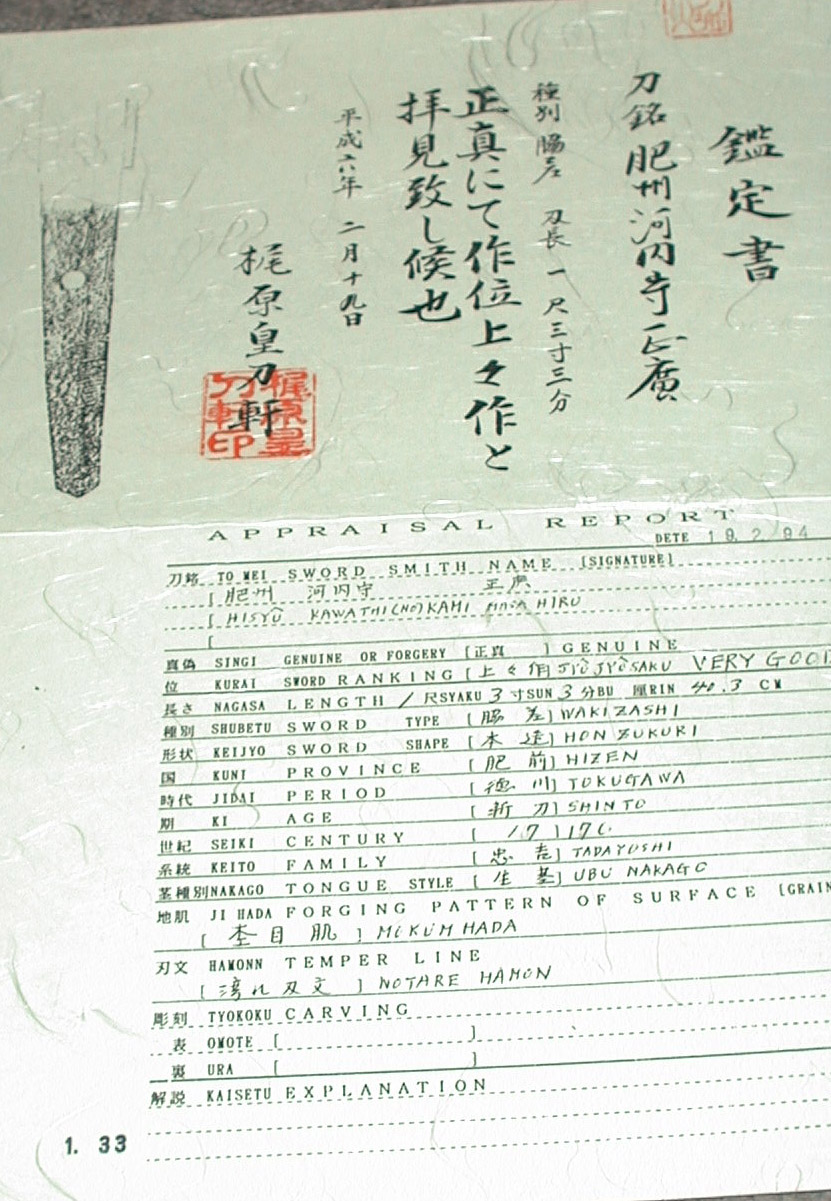 鑑定書
刀銘 肥州河内守正廣
種別 脇差 刃長 一尺三寸三分
正真にて作位上々作と
拝見致し候也
平成六年 二月十九日
梶原皇刀軒
梶原皇刀軒印
APPRAISAL REPORT
DETE 19.2.94
刀銘 TO MEI SWORD SMITH NAME [SIGNATURE]
[ 肥州 河内守 正廣
[ HISYŪ KAWATHI(NO)KAMI MASA HIRU
[
真偽 SINGI GENUINE OR FORGERY [正真 ] GENUINE
位 KURAI SWORD RANKING [上々作] JYŌJYŌSAKU VERY GOOD
長さ NAGASA LENGTH 1 尺SYAKU 3 寸SUN 3 分BU 厘RIN 40.3 CM
種別 SHUBETU SWORD TYPE [脇差] WAKIZASHI
形状 KEIJYO SWORD SHAPE [本造] HON ZUKURI
国 KUNI PROVINCE [肥前] HIZEN
時代 JIDAI PERIOD [徳川] TOKUGAWA
期 KI AGE [新刀] SHINTO
世紀 SEIKI CENTURY [ 17 ] 17C
系統 KEITO FAMILY [忠吉] TADAYOSHI
茎種別 NAKAGO TONGUE STYLE [生茎] UBU NAKAGO
地肌 JI HADA FORGING PATTERN OF SURFACE [GRAIN
[ 杢目肌 ] MOKUM HADA
刃文 HAMONN TEMPER LINE
[ 湾れ刃文 ] NOTARE HAMON
彫刻 TYOKOKU CARVING
表 OMOTE [ ]
裏 URA [ ]
解説 KAISETU EXPLANATION
1. 33